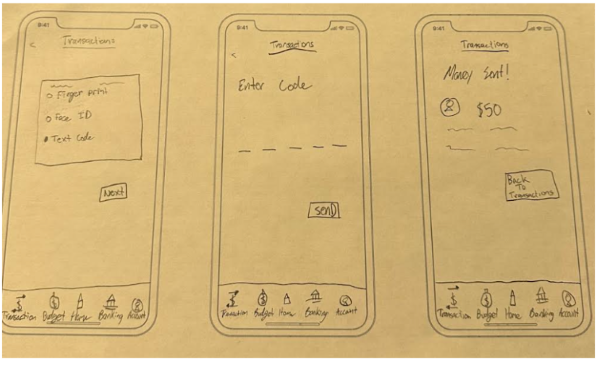 9:41
<
Transactions
Finger print
Face ID
Text Code
Next
Transaction Budget Home Banking Account
9:41
<
Transactions
Enter Code
send
Transaction Budget Home Banking Account
9:41
Transactions
Money Sent!
$50
Back
To
Transactions
Transaction Budget Home Banking Account